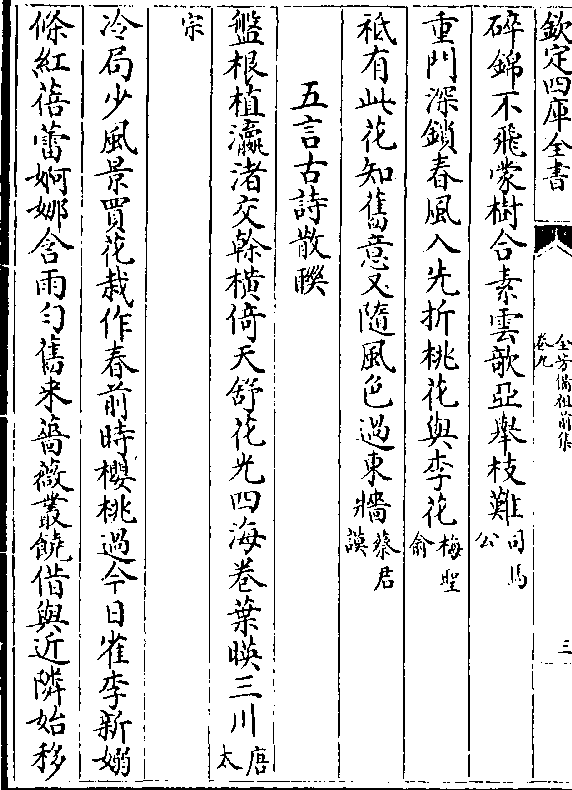 欽定四庫全書
全芳備祖前集
卷九
三
碎錦不飛蒙樹合素雲欹亞舉枝難司馬
公
重門深鎖春風入先折桃花與李花梅聖
俞
祗有此花知舊意又隨風色過東牆蔡君
謨
五言古詩散聨
盤根植瀛渚交幹橫倚天舒花光四海卷葉暎三川唐
太
宗
冷局少風景買花栽作春前時櫻桃過今日雀李新嫋
條紅蓓蕾婀娜含雨勻舊来薔薇叢饒借與近隣始移